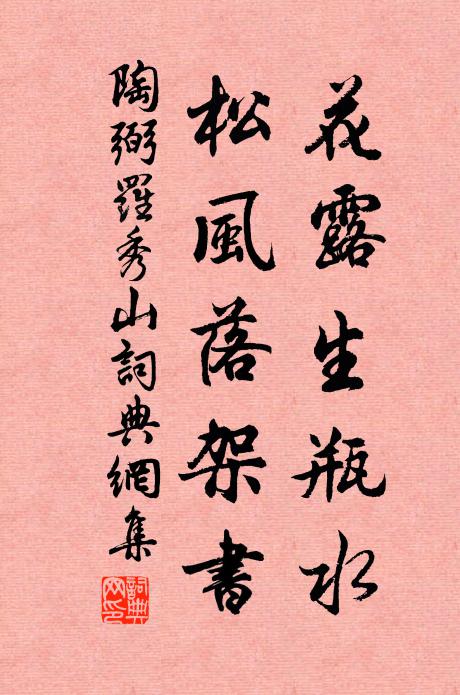 花露生瓶水
松風落架書
陶弼羅秀山詞典網集
詞典網印